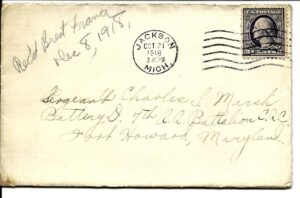 Rec'd Brest France
Dec 8, 1918.
JACKSON
OCT 21
1918
MICH.
U.S. POSTAGE
Sergeant Charles S. March
Battery D. 7th A.A. Battalion C.A.C.
Fort Howard, Maryland